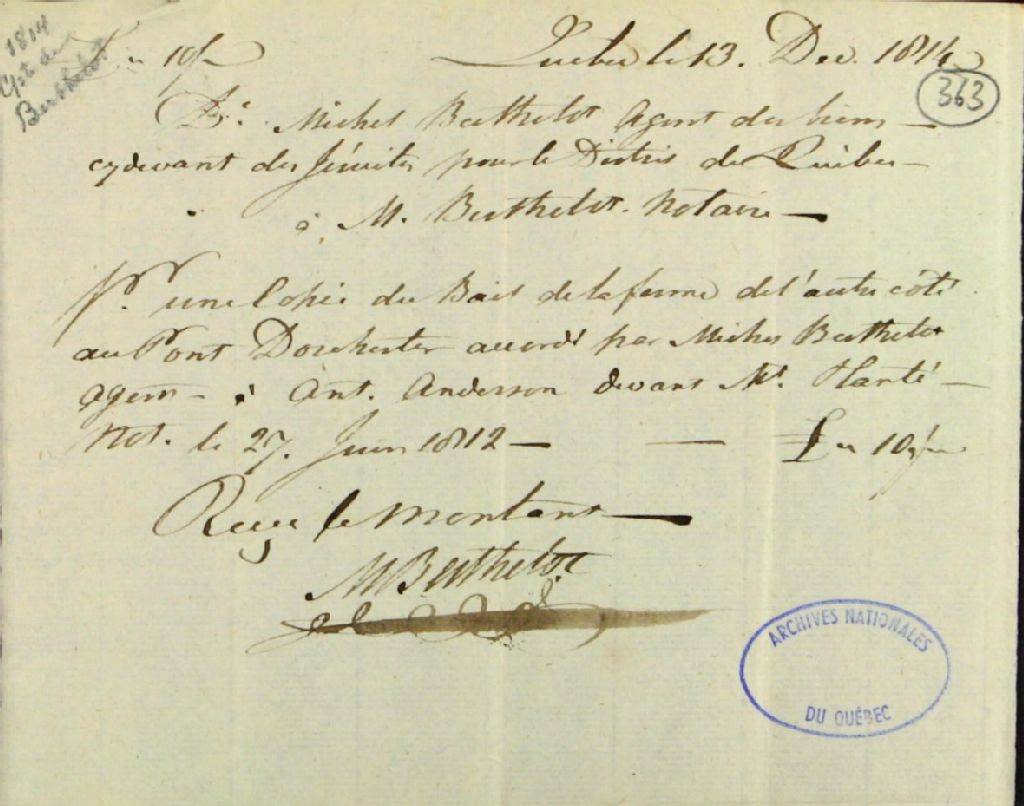 1814
Cpt de
Berthelot
£ " 10/
Quebec le 13. Dec. 1814
363
Dr. Michel Berthelot Agent des biens
cydevant des Jésuites pour le District de Quebec
à M. Berthelot. Notaire
Pr. une Copie du Bail de la ferme de l'autre côté
au Pont Dorchester accordé par Michel Berthelot
Agent à Ant. Anderson devant Mr. Planté
Not. le 27. Juin 1812 — — £ " 10/
Reçu le montant
M Berthelot
ARCHIVES NATIONALES
DU QUÉBEC